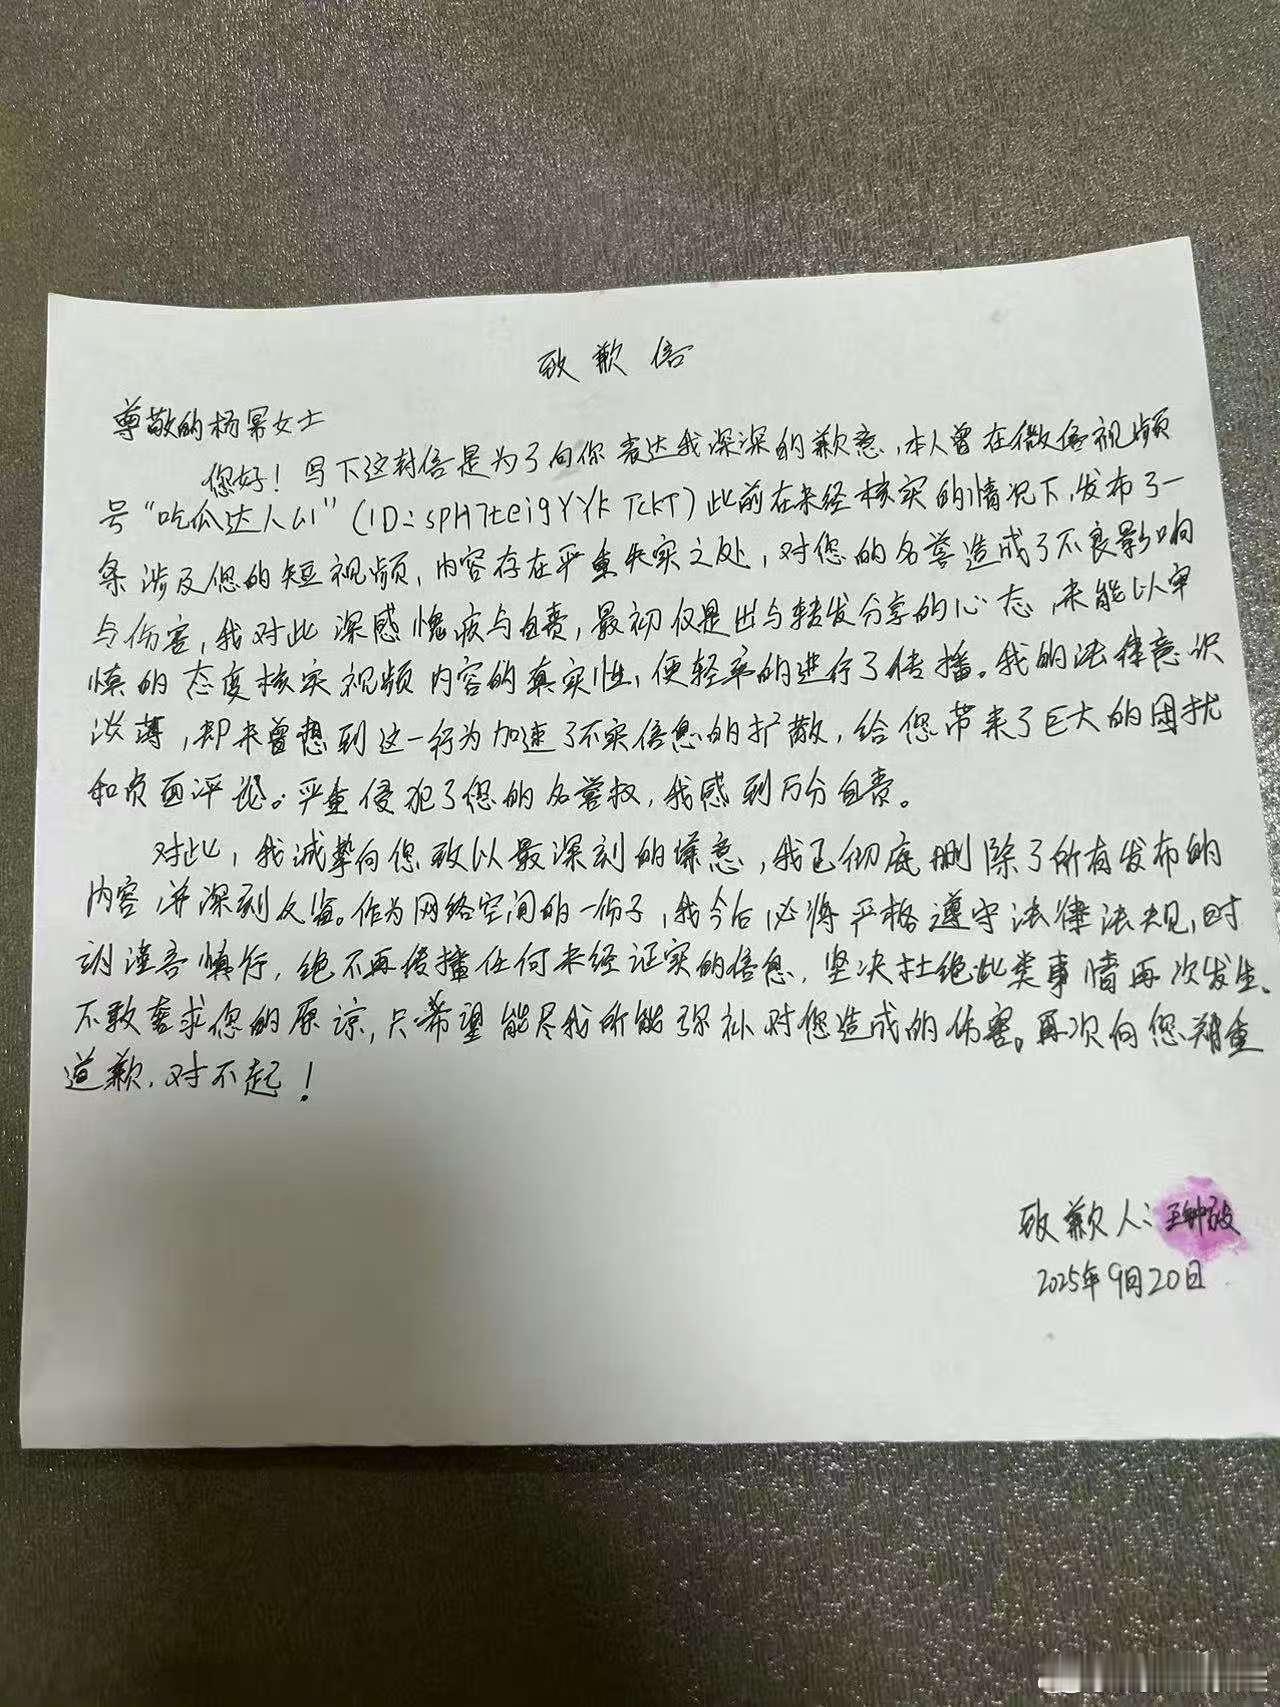 致歉信
尊敬的杨幂女士
您好！写下这封信是为了向你表达我深深的歉意，本人曾在微信视频
号“吃瓜达人山”（ID：sPH7teigYYkTCKT）此前在未经核实的情况下，发布了一
条涉及您的短视频，内容存在严重失实之处，对您的名誉造成了不良影响
与伤害，我对此深感愧疚与自责，最初仅是出与转发分享的心态，未能以审
慎的态度核实视频内容的真实性，便轻率的进行了传播。我的法律意识
淡薄，却未曾想到这一行为加速了不实信息的扩散，给您带来了巨大的困扰
和负面评论。严重侵犯了您的名誉权，我感到万分自责。
对此，我诚挚向您致以最深刻的歉意，我已彻底删除了所有发布的
内容，并深刻反省。作为网络空间的一份子，我今后必将严格遵守法律法规，时
刻谨言慎行，绝不再传播任何未经证实的信息，坚决杜绝此类事情再次发生。
不敢奢求您的原谅，只希望能尽我所能弥补对您造成的伤害。再次向您郑重
道歉，对不起！
致歉人：
2025年9月20日